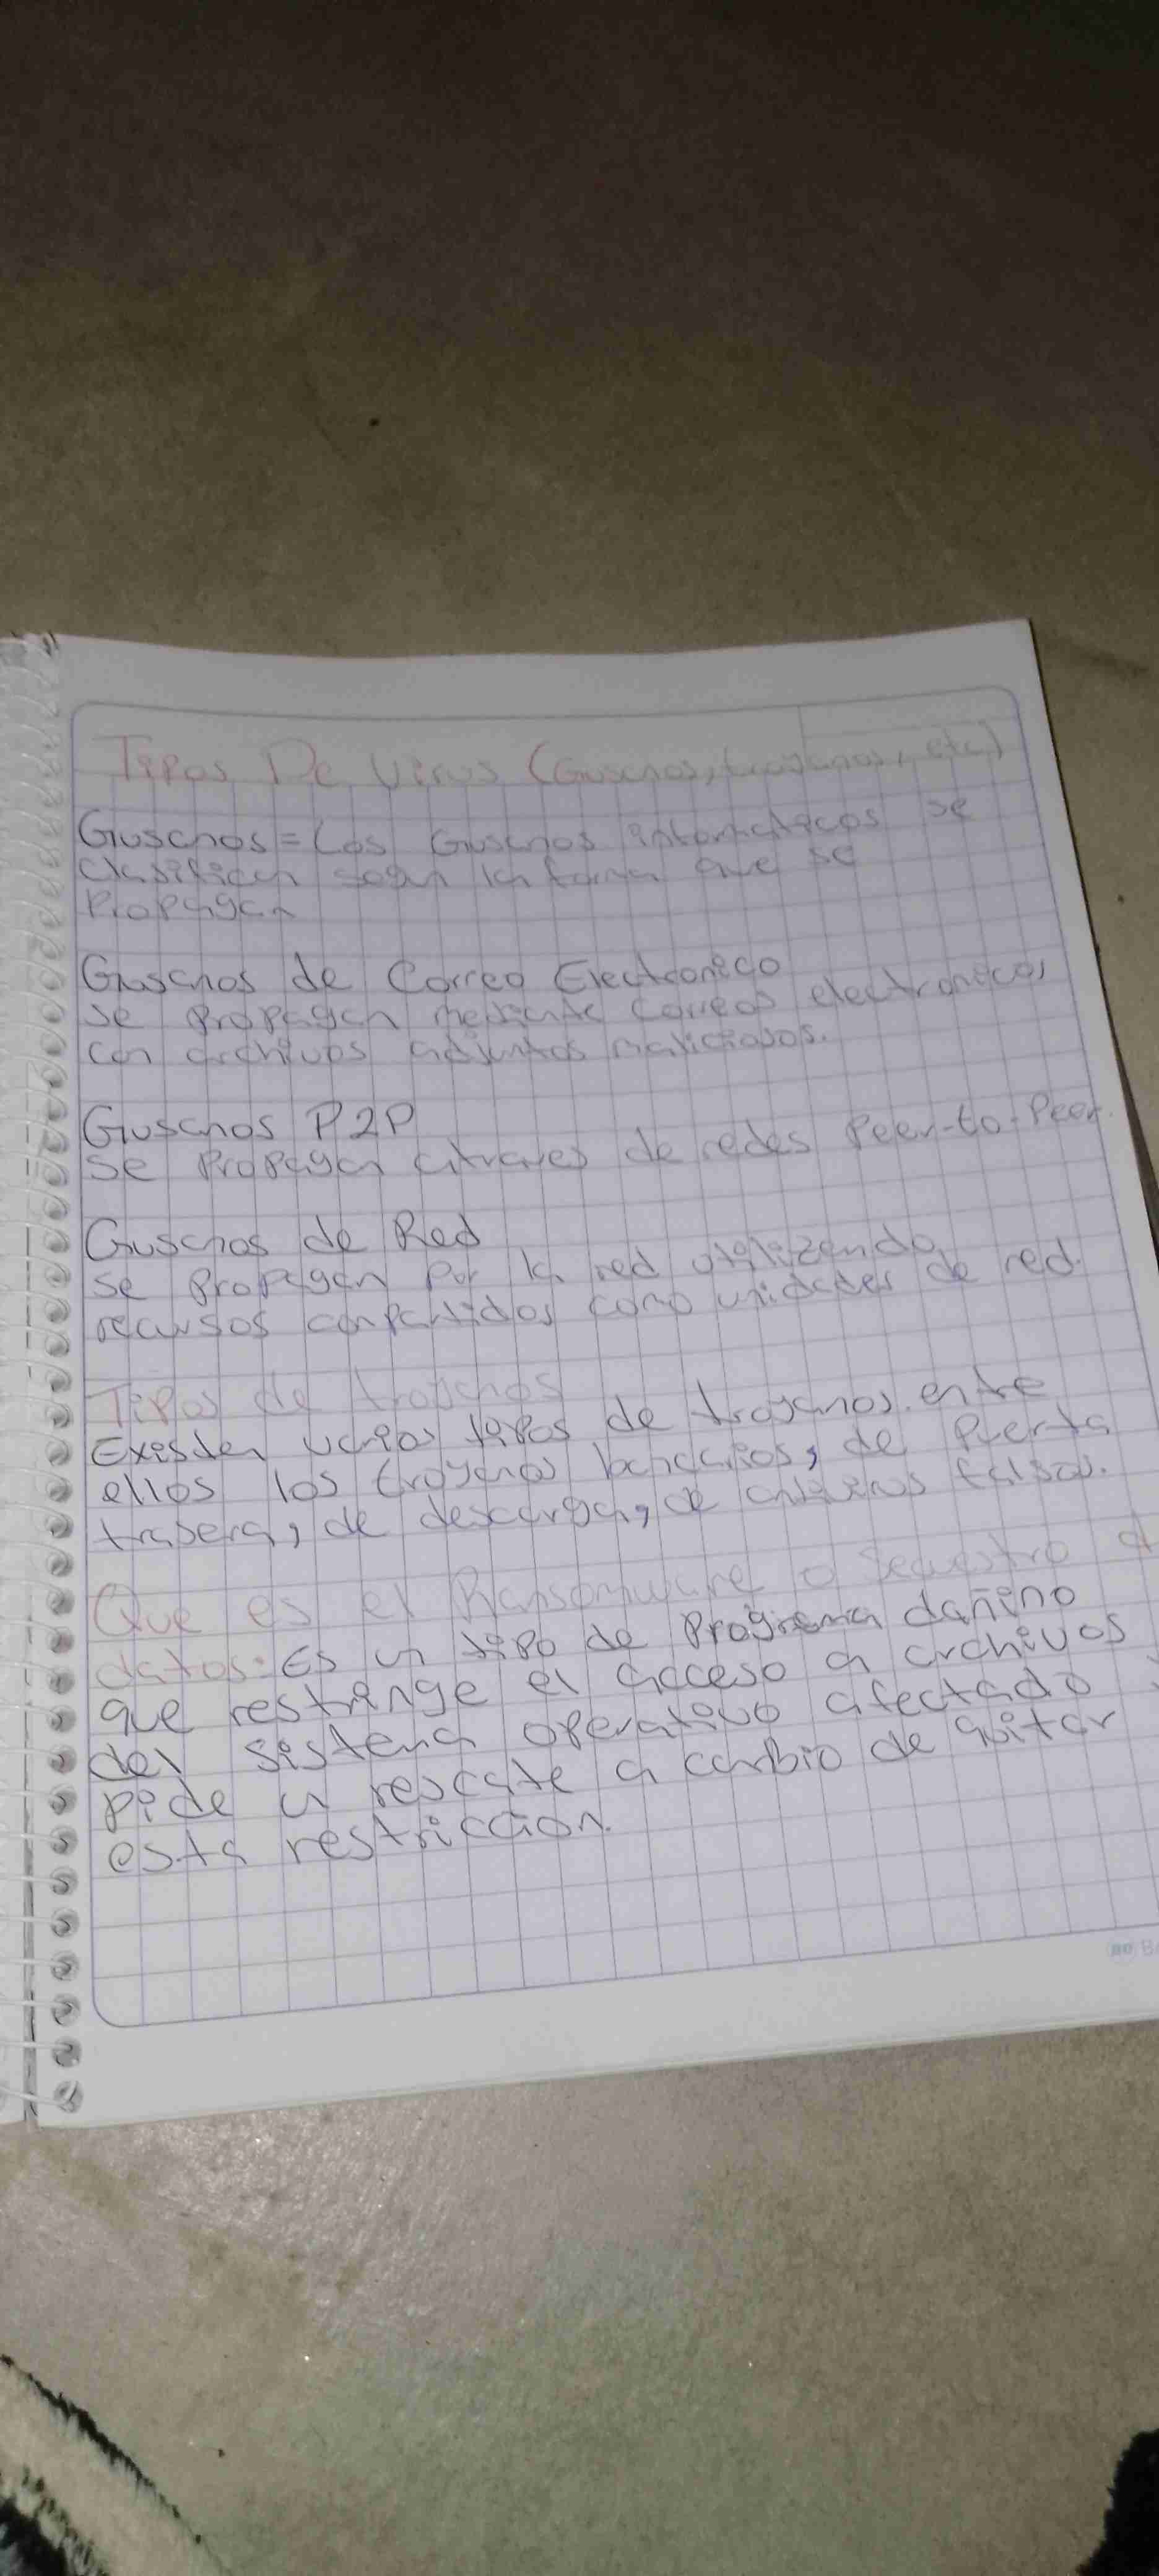 Tipos De Virus (Gusanos, troyanos, etc)
Gusanos = Los Gusanos informaticos se
Clasifican segun la forma que se
Propagan
Gusanos de Correo Electronico
se propagan mediante correos electronicos
con archivos adjuntos maliciosos.
Gusanos P2P
se propagan atraves de redes Peer-to-Peer.
Gusanos de Red
se propagan por la red utilizando
recursos compartidos como unidades de red.
Tipos de troyanos
Existen varios tipos de troyanos. entre
ellos los troyanos bancarios, de puerta
trasera, de descarga, de antivirus falsos.
Que es el Ransomware o Secuestro d
datos: Es un tipo de Programa dañino
que restringe el acceso a archivos
del sistema operativo afectado y
pide un rescate a cambio de quitar
esta restriccion.